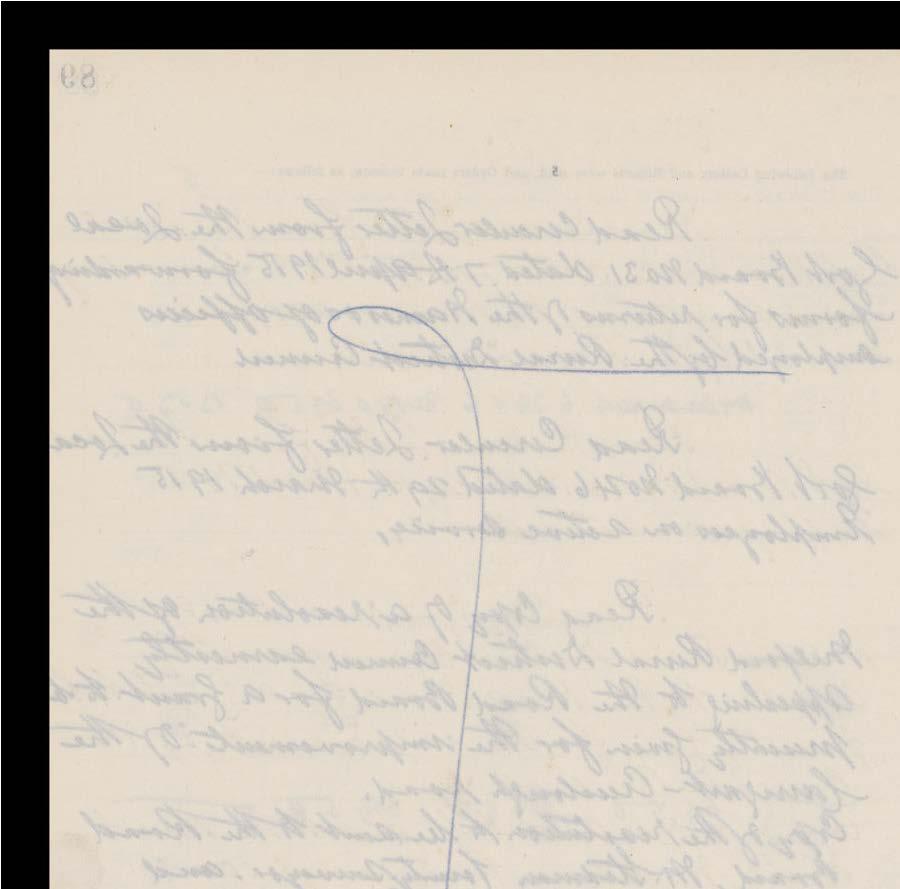 89
The following Letters and Reports were read, and Orders made thereon, as follows:—
5
Read Circular Letter from the Local
Govt Board No 31 dated 7th April 1915 forwarding
forms for returns of the Names of officers
employed by the Rural District Council
Read Circular Letter from the Loca
Govt Board No 26 dated 29th March 1915
Employees on active service,
Read Copy of a resolution of the
Milford Rural District Council earnestly
appealing to the Road Board for a Grant to
for the improvement of the
road.
Copy of the resolution to be sent to the Road
Board, County Surveyor and